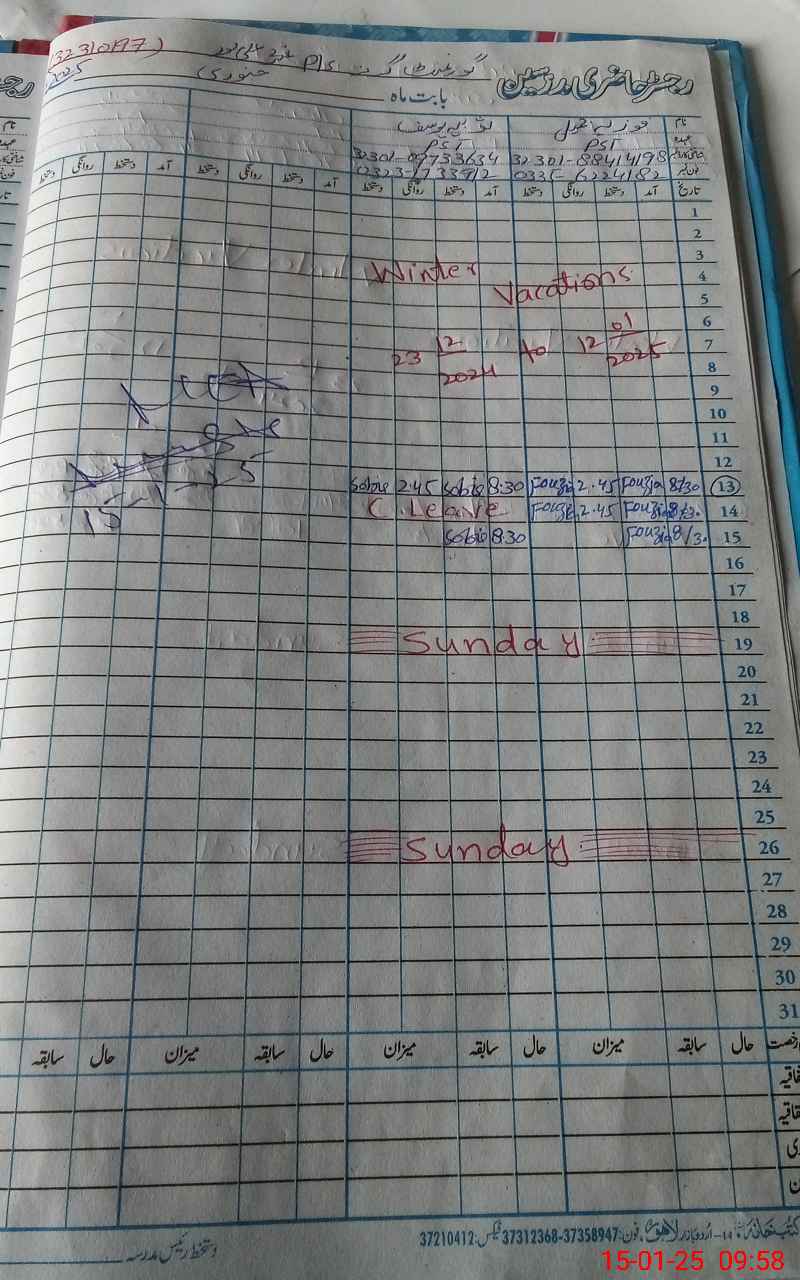 رجسٹر حاضری مدرسین
گورنمنٹ گرلز P/S
(32310197)
2025
بابت ماہ جنوری
نام فوزیہ بتول ثوبیہ یوسف
عہدہ PST PST
32301-8841498
0335-6224182
آمد دستخط روانگی دستخط آمد دستخط روانگی دستخط آمد دستخط روانگی دستخط آمد دستخط روانگی دستخط
تاریخ
1
2
3
4
Winter Vacations
5
6
7
23 12/2024 to 12 01/2025
8
9
10
11
12
13 Fouzia 8/30 Fouzia 2.45 Sobia 8:30 Sobia 2.45
14 Fouzia 8/30 Fouzia 2.45 C. Leave
15 Fouzia 8/30 Sobia 8:30
15-1-25
16
17
18
19 Sunday
20
21
22
23
24
25
26 Sunday
27
28
29
30
31
رخصت حال سابقہ میزان حال سابقہ میزان حال سابقہ میزان حال سابقہ
دستخط رئیس مدرسہ
14-اردو بازار لاہور، فون: 37358947-37312368 فیکس: 37210412
15-01-25 09:58